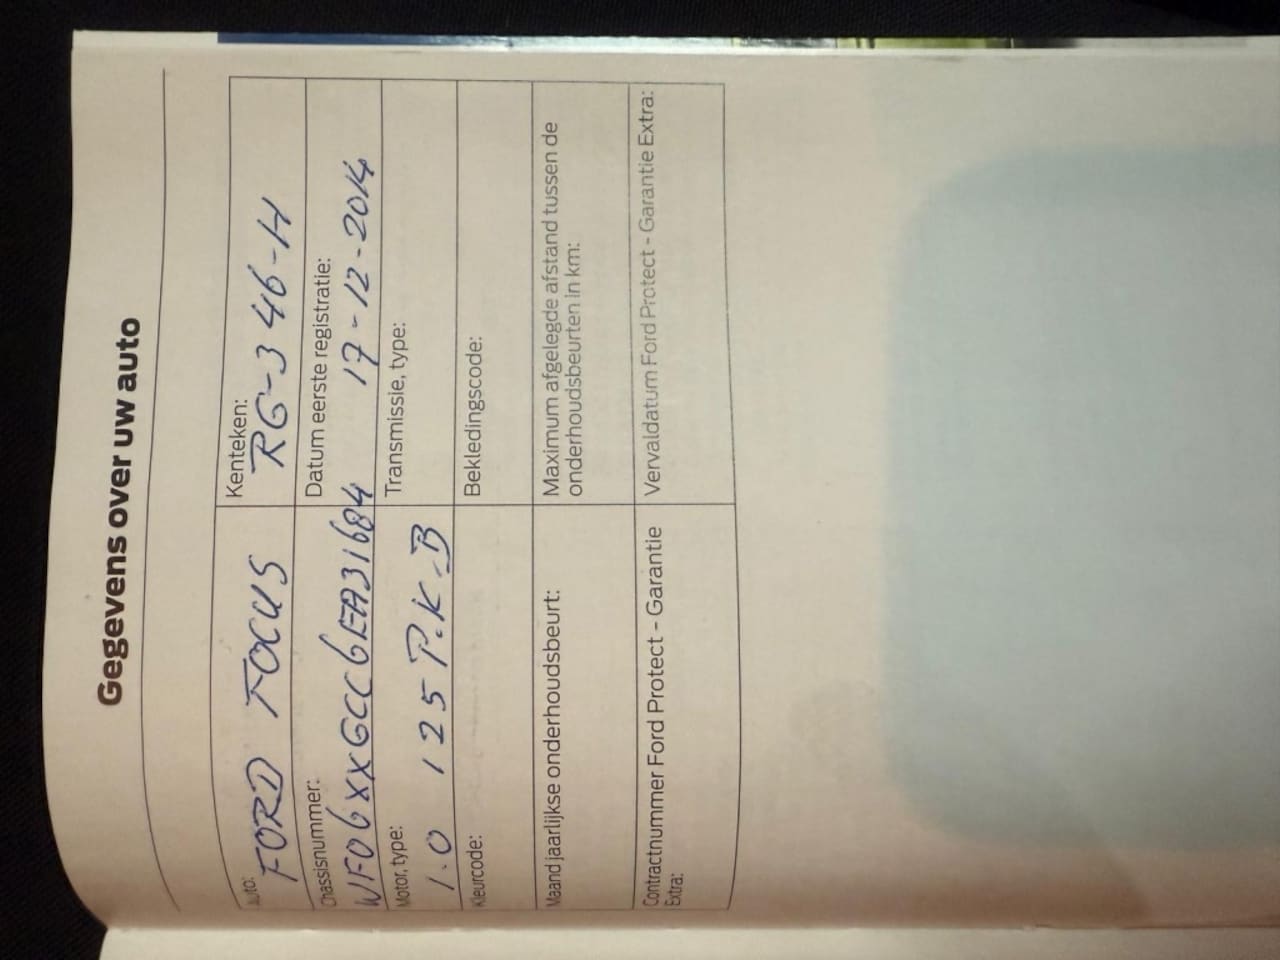 Gegevens over uw auto
Auto:
FORD FOCUS
Kenteken:
RG-346-H
Chassisnummer:
WF06XXGCC6EA31684
Datum eerste registratie:
17-12-2014
Motor, type:
1.0 125 P.K.B
Transmissie, type:
Kleurcode:
Bekledingscode:
Maand jaarlijkse onderhoudsbeurt:
Maximum afgelegde afstand tussen de
onderhoudsbeurten in km:
Contractnummer Ford Protect - Garantie
Extra:
Vervaldatum Ford Protect - Garantie Extra: